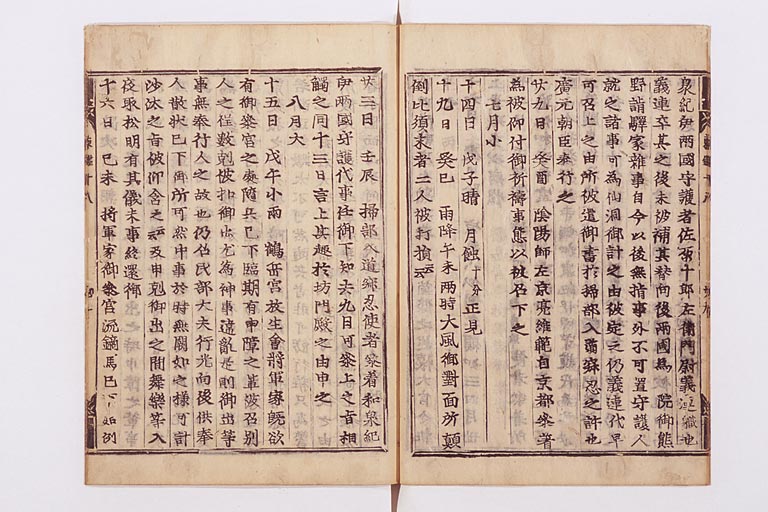 泉紀伊兩國守護者佐原十郎左衛門尉義連職也
義連卒其之後未被補其替向後兩國為 院御熊
野詣驛家雜事自今以後無指事外不可置守護人
就之諸事可為仙洞御計之由被定之仍義連代早
可召上之由所被遣御書於掃部入道寂忍之許也
廣元朝臣奉行之
廿九日 癸酉 陰陽師左京亮維範自京都參著
為被仰付御祈禱事態以被召下之
七月小
十四日 戊子晴 月蝕十分正見
十九日 癸巳 雨降午未兩時大風御對面所顛
倒比須末者二人被打損云云
廿三日 壬辰 掃部入道寂忍使者參着和泉紀
伊兩國守護代事任御下知去九日可參上之旨相
觸之同十三日言上其趣於坊門殿之由申之
八月大
十五日 戊午小雨 鶴岳宮放生會將軍家既欲
有御參宮之處隨兵已下臨期有申障之輩被召別
人之程數剋被扣御出尤為神事違亂是則御出等
事無奉行人之故也仍仰民部大夫行光向後供奉
人散狀已下御所可然中事於時無闕如之様可計
沙汰之旨被仰含之云云及申剋御出之間舞樂等入
夜取松明有其儀末事終還御
十六日 己未 將軍家御參宮流鏑馬已下如例